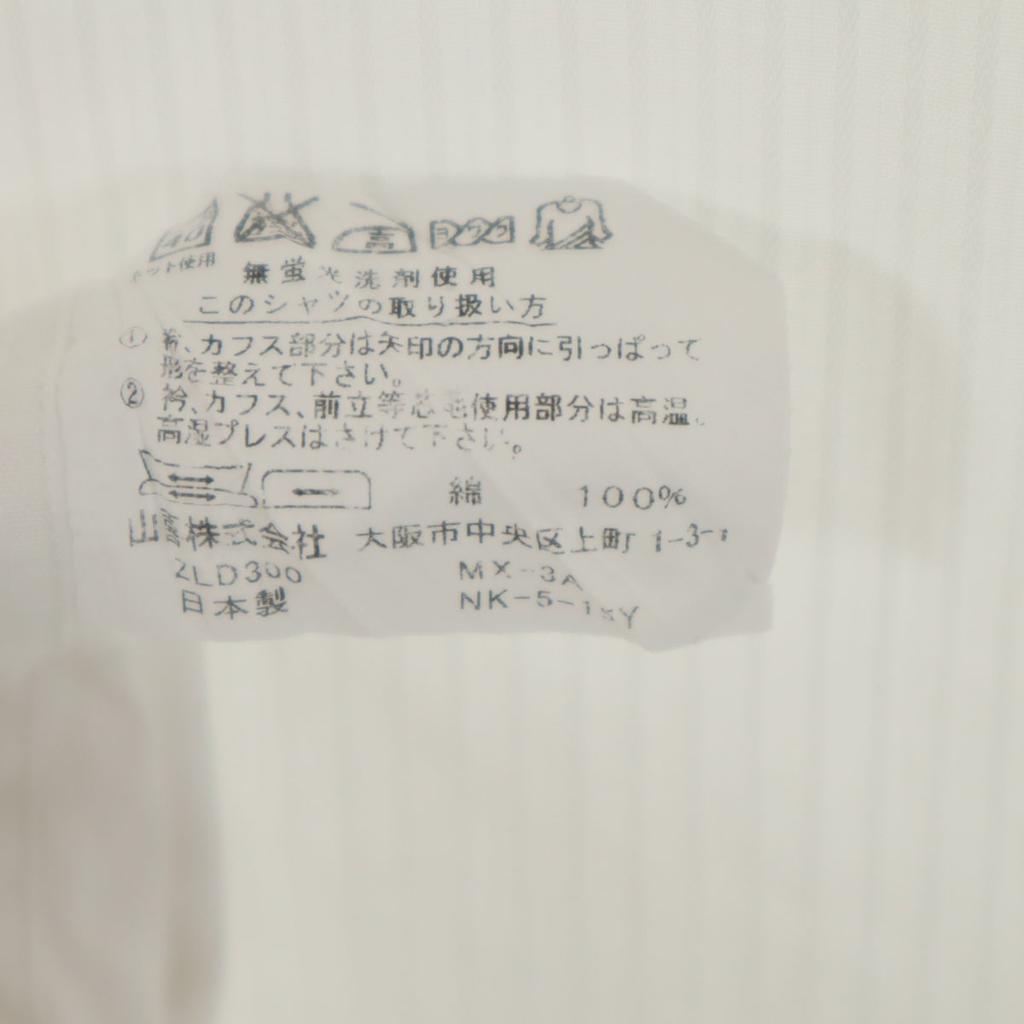 40
高
ネット使用
無蛍光洗剤使用
このシャツの取り扱い方
① 衿、カフス部分は矢印の方向に引っぱって
形を整えて下さい。
② 衿、カフス、前立等芯地使用部分は高温、
高湿プレスはさけて下さい。
綿 100%
株式会社 大阪市中央区上町1-3-1
2LD300 MX-3A
日本製 NK-5-1